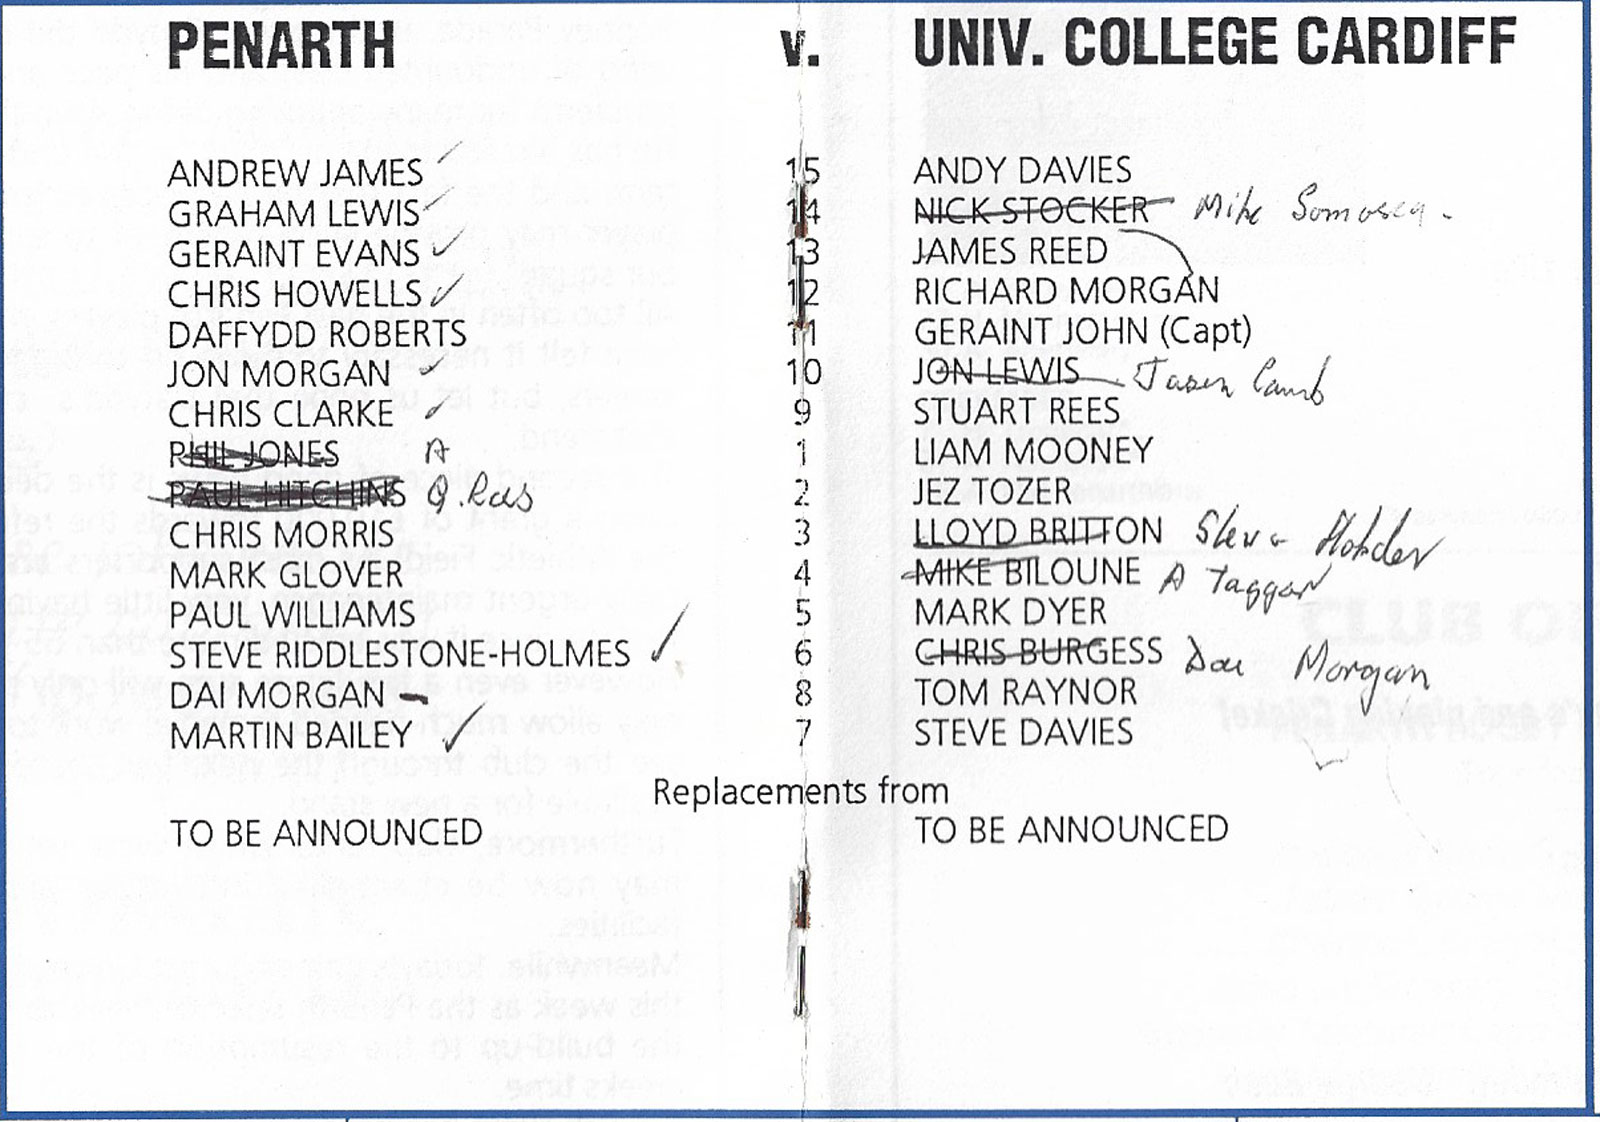 PENARTH v. UNIV. COLLEGE CARDIFF
ANDREW JAMES 15 ANDY DAVIES
GRAHAM LEWIS 14 NICK STOCKER Mike
GERAINT EVANS 13 JAMES REED
CHRIS HOWELLS 12 RICHARD MORGAN
DAFFYDD ROBERTS 11 GERAINT JOHN (Capt)
JON MORGAN 10 JON LEWIS Jason
CHRIS CLARKE 9 STUART REES
PHIL JONES A 1 LIAM MOONEY
PAUL 2 JEZ TOZER
CHRIS MORRIS 3 LLOYD BRITTON Steve
MARK GLOVER 4 MIKE BILOUNE A Taggar
PAUL WILLIAMS 5 MARK DYER
STEVE RIDDLESTONE-HOLMES 6 CHRIS BURGESS Dai Morgan
DAI MORGAN 8 TOM RAYNOR
MARTIN BAILEY 7 STEVE DAVIES
Replacements from
TO BE ANNOUNCED TO BE ANNOUNCED